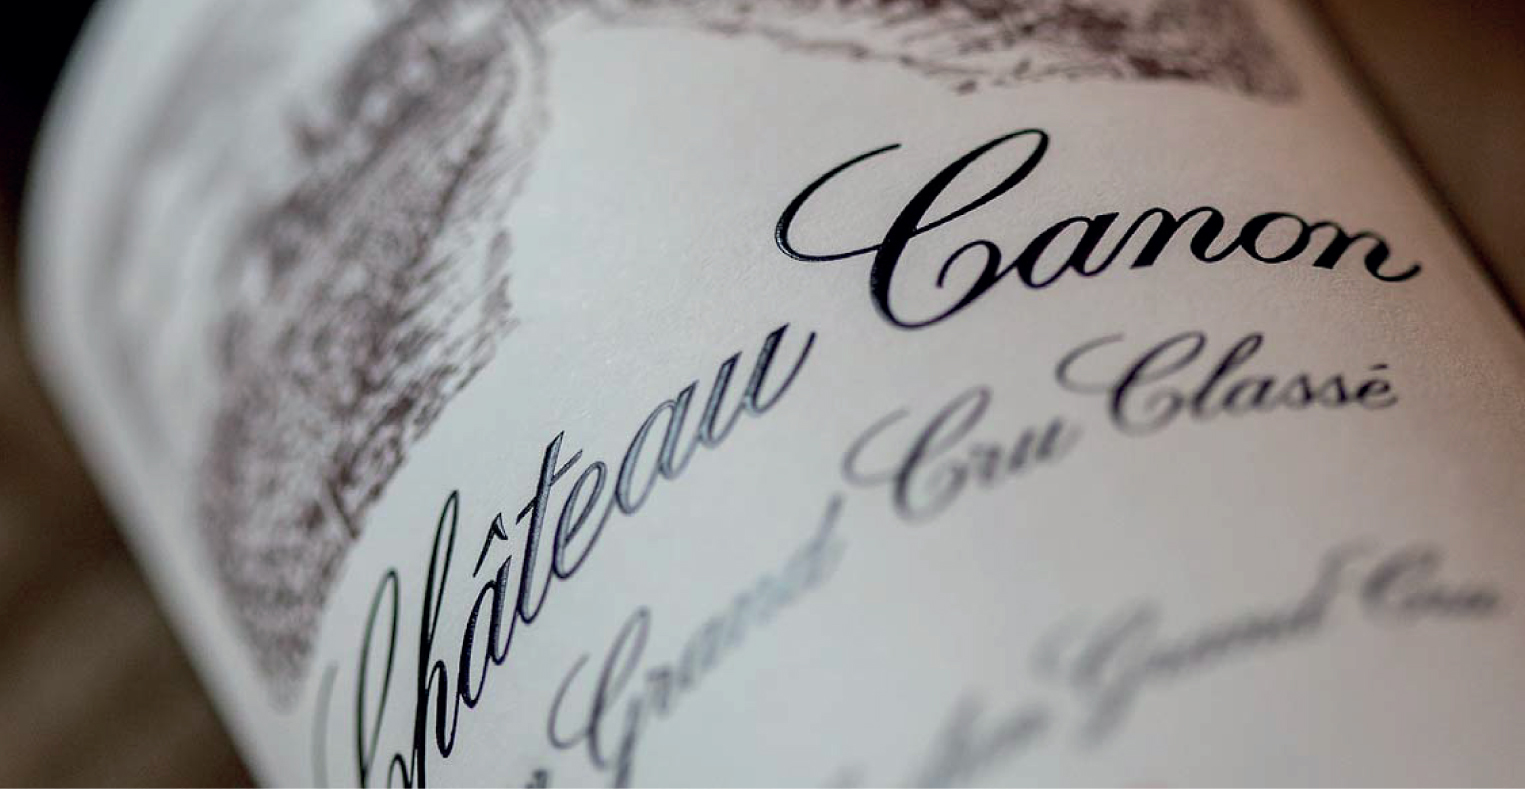 Château Canon
Grand Cru Classé
Grand Cru